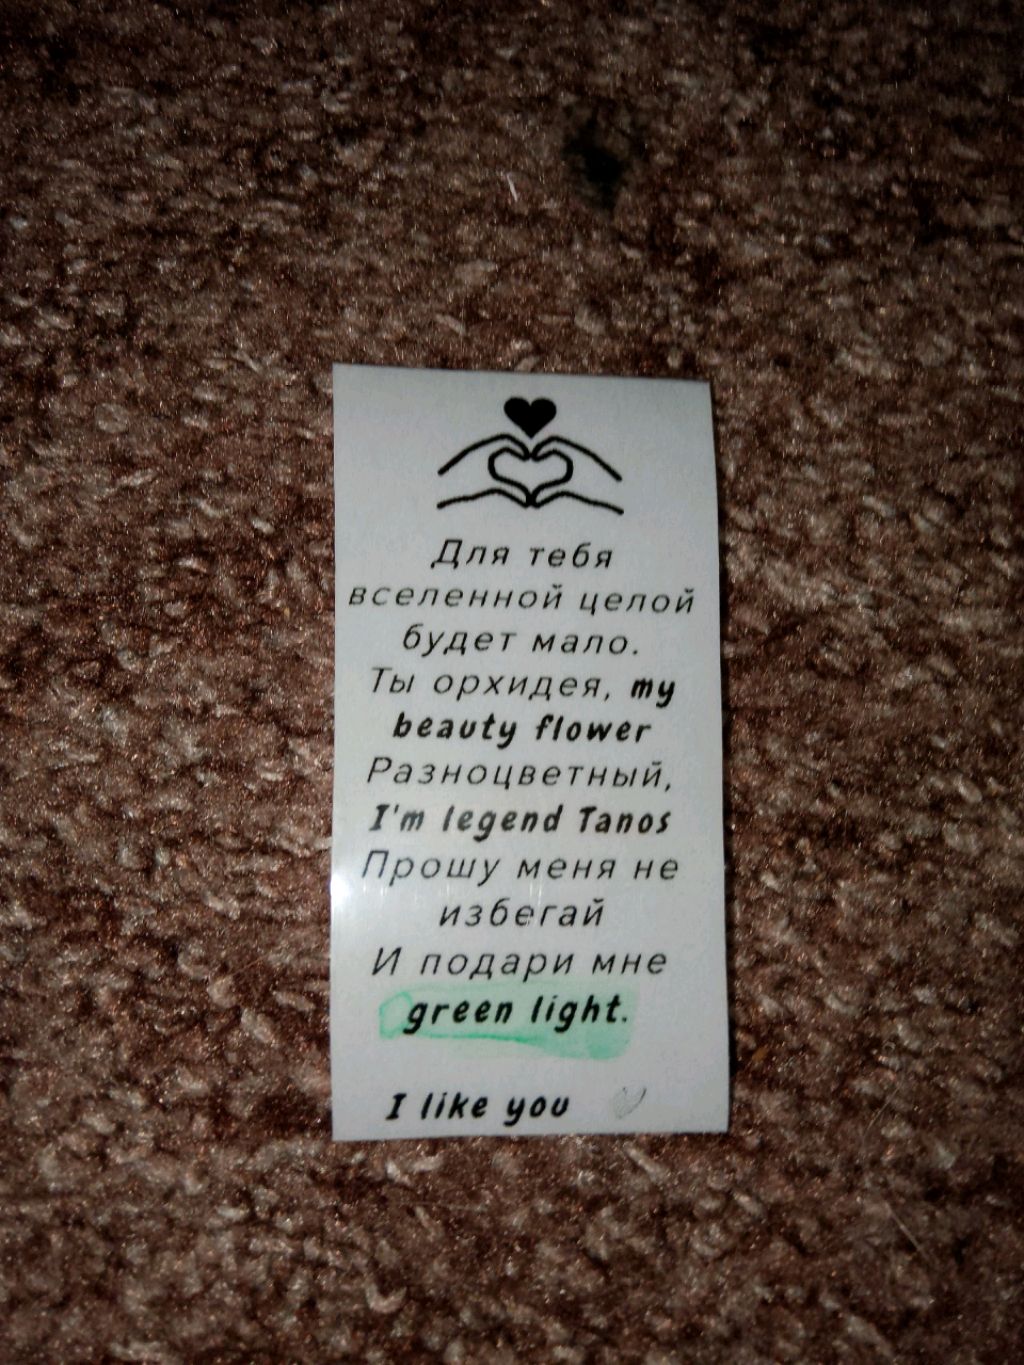 Для тебя
вселенной целой
будет мало.
Ты орхидея, my
beauty flower
Разноцветный,
I'm legend Tanos
Прошу меня не
избегай
И подари мне
green light.
I like you